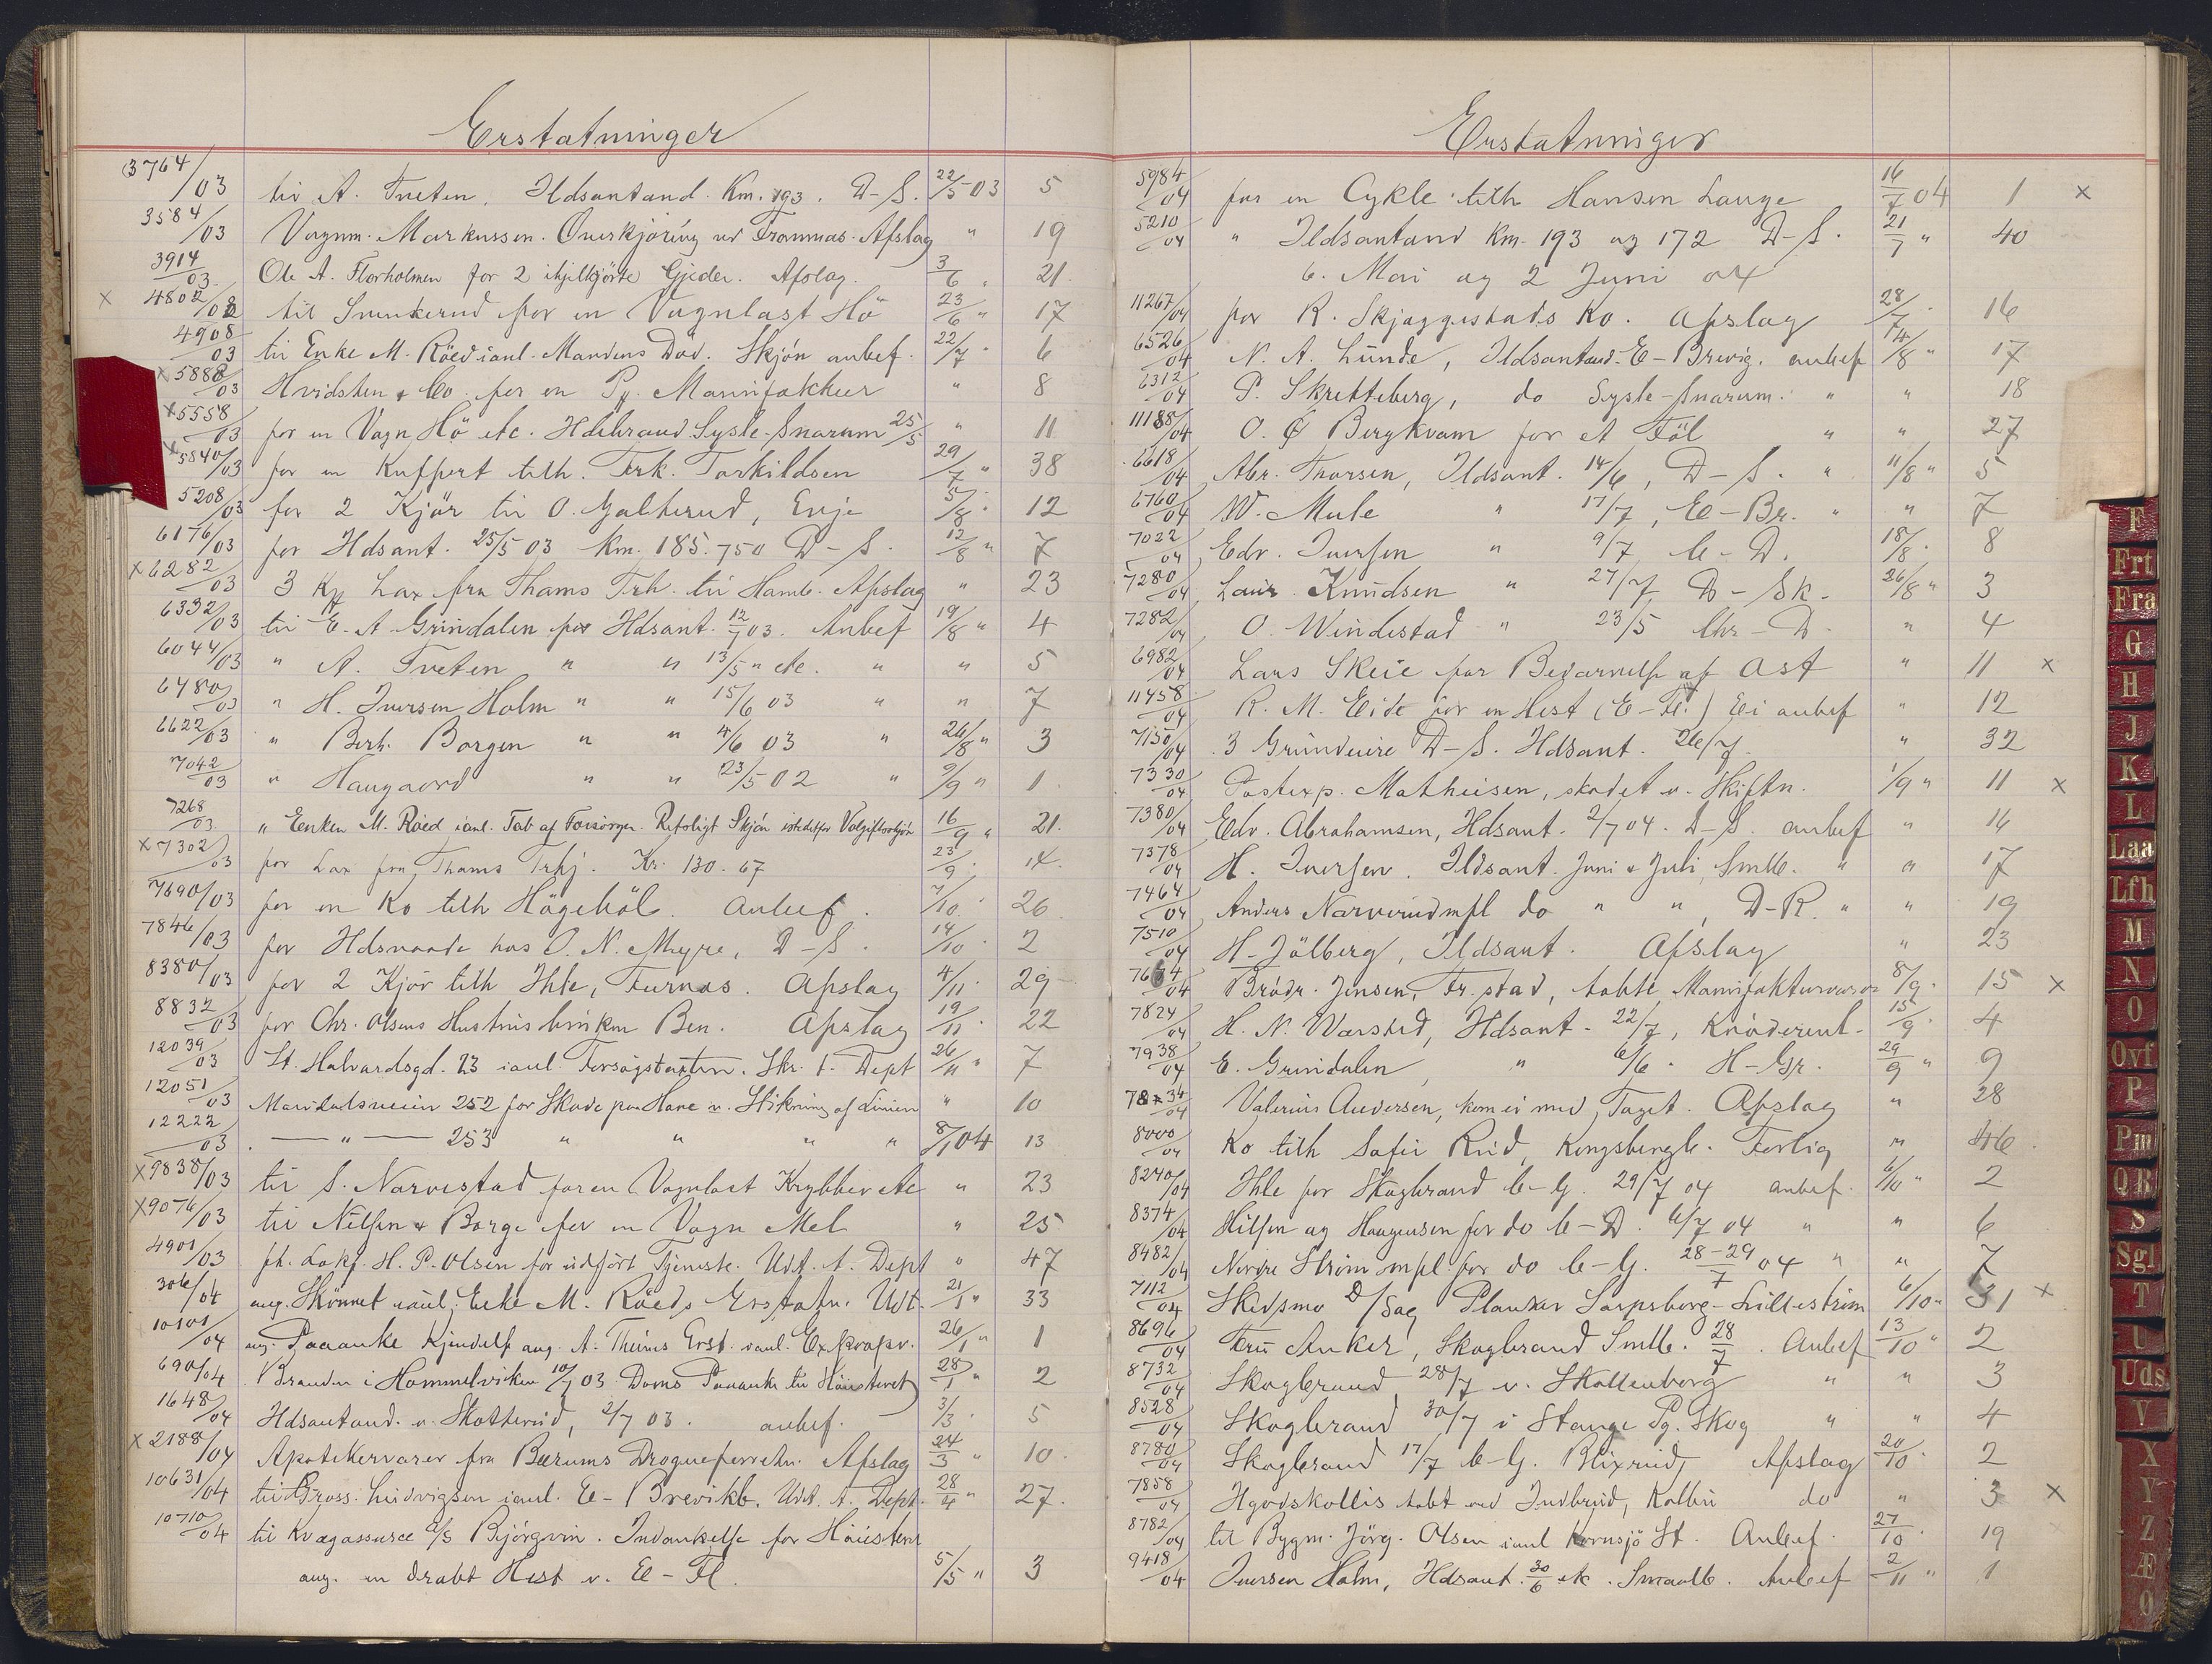 Erstatninger
3764/03 til A. Tveten, Ildsantænd. Km. 193. D-S. 22/5 03 5
3584/03 Vognm. Markussen. Overkjöring ved Afslag " 19
3914/03 Ole A. Florholmen for 2 ihjelkjörte Gjeder. Afslag. 3/6 " 21.
x 4802/03 til for en Vognlast Hö 23/6 " 17
4908/03 til Enke M. Röed i anl. Mandens Död. Skjön anbef. 22/7 " 6
x 5888/03 Hvidsten & Co. for en Manufaktur " 8
x 5558/03 for en Vagn Hö etc. Ildsbrand Sysle-Snarum 25/5 " 11
x 5840/03 for en Kuffert tilh. Frk. Torkildsen 29/7 " 38
5208/03 for 2 Kjör til O. Galterud, 5/8 " 12
6176/03 for Ildsant. 25/5 03 Km. 185.750 D-S. 12/8 " 7
x 6282/03 3 Lax fra Thams Trh. til Hamb. Afslag " 23
6332/03 til E. A. Grindalen for Ildsant. 12/7 03. Anbef 19/8 " 4
6044/03 " A. Tveten " " 13/5 " etc. " " 5
6480/03 " H. Iversen Holm " " 15/6 03 " " 7
6622/03 " Berh. Borgen " " 4/6 03 " 26/8 " 3
7042/03 " Haugaard " " 23/5 02 " 9/9 " 1
7268/03 " Enken M. Röed i anl. Tab af Forsörger. Skjön istedetfor 16/9 " 21.
x 7302/03 for Lax fra Thams Kr. 130.67 23/9 " 14.
7690/03 for en Ko tilh Högeböl. Anbef. 7/10 " 26
7846/03 for Ildsvaade hos O. N. Myre, D-S. 14/10 " 2
8380/03 for 2 Kjör tilh Ihle, Furnes. Afslag 4/11 " 29
8832/03 for Chr. Olsens Hustrus brukne Ben. Afslag 19/11 " 22
12039/03 St. Halvardsgd. 23 i anl. Skr. t. Dept 26/11 " 7
12051/03 Maridalsveien 252 for Skade paa Have v. Stikning af Linien " 10
12222/03 — " — 253 " " " " 8/1 04 13
x 9838/03 til S. Narvestad for en Vognlast Krybber etc " 23
x 9076/03 til Nilsen & Borge for en Vogn Mel " 25
4901/03 fh. Lokf. H. P. Olsen for udfört Tjeneste. Udt. t. Dept " 47
306/04 ang. Skönnet i anl. Enke M. Röeds Erstatn. Udt. 21/1 " 33
10101/04 ang. Paaanke Kjendelse ang. A. Theines Erst. i anl. Exspropr. 26/1 " 1
690/04 Branden i Hommelviken 10/7 03. Doms Paaanke til Höiesteret 28/1 " 2
1648/04 Ildsantænd. v. Skotterud, 2/7 03. anbef. 3/3 " 5
x 2188/04 Apotekervarer fra Bærums Drogueforretn. Afslag 24/3 " 10.
10631/04 til Gross. Ludvigsen i anl. E-Brevikb. Udt. t. Dept. 28/4 " 27.
10710/04 til Kvægassurce A/S Björgvin. Indankelse for Höiesteret
ang. en dræbt Hest v. E-Fl. 5/5 " 3
Erstatninger
5984/04 for en Cykle tilh Hansen Lange 16/7 04 1 x
5210/04 " Ildsantænd Km. 193 og 172 D-S. 21/7 " 40
6. Mai og 2 Juni 04
11267/04 for R. Skjæggestads Ko. Afslag 28/7 " 16
6526/04 N. A. Lunde, Ildsantænd. E-Brevig. anbef 14/8 " 17
6312/04 P. Skretteberg, do Sysle-Snarum. " " 18
11188/04 O. Ø Bergkvam for et Föl " " 27
6618/04 Abr. Thorsen, Ildsant. 14/6, D-S. " 11/8 " 5
6760/04 W. Mule " 17/7, E-Br. " " 7
7022/04 Edv. Iversen " 9/7 C-D. 18/8 " 8
7280/04 Laur. Knudsen " 27/7 D-Sk. 26/8 " 3
7282/04 O. Windestad " 23/5 Chr-D. " 4
6982/04 Lars Skeie for Bedærvelse af Ost " 11 x
11458/04 R. M. Eide for en Hest (E-Fl.) Ei anbef " 12
7150/04 3 Grundeiere D-S. Ildsant. 26/7 " 32
7330/04 Postexp. Mathisen, skadet v. Skiftn. 1/9 " 11 x
7380/04 Edv. Abrahamsen, Ildsant. 2/7 04. D-S. anbef " 16
7378/04 H. Iversen. Ildsant. Juni & Juli, Smlb. " " 17
7464/04 Anders Narverud mfl do " ", D-R. " " 19
7510/04 H. Jölberg, Ildsant. Afslag " 23
7664/04 Brödr. Jensen, Fr.stad, tabte Manufakturvarer 8/9 " 15 x
7824/04 H. N. Warsted, Ildsant. 22/7, 15/9 " 4
7938/04 E. Grindalen, " 6/6. H-Gr. 29/9 " 9
7834/04 Valerius Andersen, kom ei med Toget. Afslag " 28
8000/04 Ko tilh Sofie Rud, Kongsbergb. Forlig " 46
8240/04 Ihle for Skogbrand C-G. 29/7 04 anbef. 6/10 " 2
8374/04 Nilsen og Haagensen for do C-D. 6/7 04 " " 6
8482/04 Nordre Ström mfl. for do C-G. 28-29/7 04 " " 7
7112/04 Skedsmo D/Sag Planker Sarpsborg-Lilleström 6/10 " 31 x
8696/04 Fru Anker, Skogbrand Smlb. 28/7. Anbef 13/10 " 2
8732/04 Skogbrand 28/7 v. Skollenborg " " 3
8528/04 Skogbrand 30/7 i Stange Pg. Skog " " 4
8780/04 Skogbrand 17/7 C-G. Blixrud, Afslag 20/10 " 2
7858/04 Ilgodskollis tabt ved Indbrud, Kolbu do " 3 x
8782/04 til Bygm. Jörg. Olsen i anl Kornsjö St. Anbef. 27/10 " 19
9418/04 Iversen Holm, Ildsant. 30/6 etc. Smaalb. Anbef 2/11 " 1
F
Frt
Fra
G
H
J
K
L
Laa
Lfh
M
N
O
Ovf
P
Pm
QR
S
Sgl
T
U
Uds
V
X
Y
Z
Æ
Ø